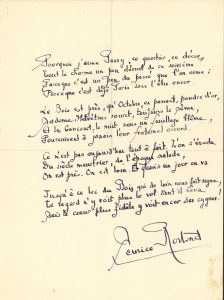 Pourquoi j'aime Passy, ce quartier, ce décor,
Tout le charme un peu désuet de ce seizième
Parceque c'est un peu du passé que l'on aime ;
Parceque c'est déjà Paris sans l'être encor.
Le Bois est près, qu'Octobre, en passant, poudre d'or,
Madame
toujours la même,
Et les Goncourt, la nuit, sous le feuillage blême,
Poursuivent à jamais leur fraternel accord.
Ce n'est pas aujourd'hui tout à fait. L'on s'évade
Du siècle meurtrier, de l'époque malade,
On est près. On est loin. Et quand un jour on va
Jusqu'à ce lac du Bois qui de loin nous fait signe,
Le regard n'y voit plus le vol dont il rêva
Mais le cœur plus fidèle y voit encor des cygnes.
Rostand